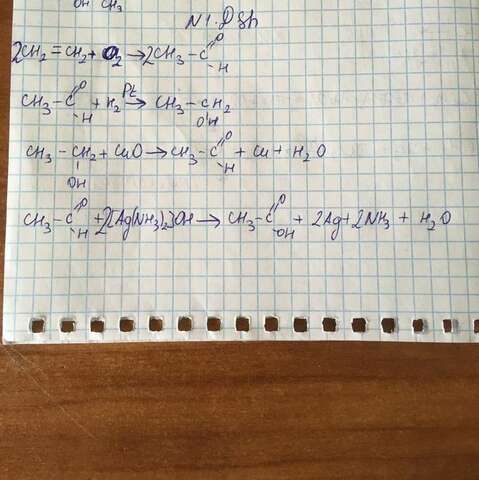 OH CH₃
N1.
2CH₂=CH₂ + O₂ → 2CH₃-C=O-H
CH₃-C=O-H + H₂ →Pt CH₃-CH₂-OH
CH₃-CH₂-OH + CuO → CH₃-C=O-H + Cu + H₂O
CH₃-C=O-H + 2[Ag(NH₃)₂]OH → CH₃-C=O-OH + 2Ag + 2NH₃ + H₂O